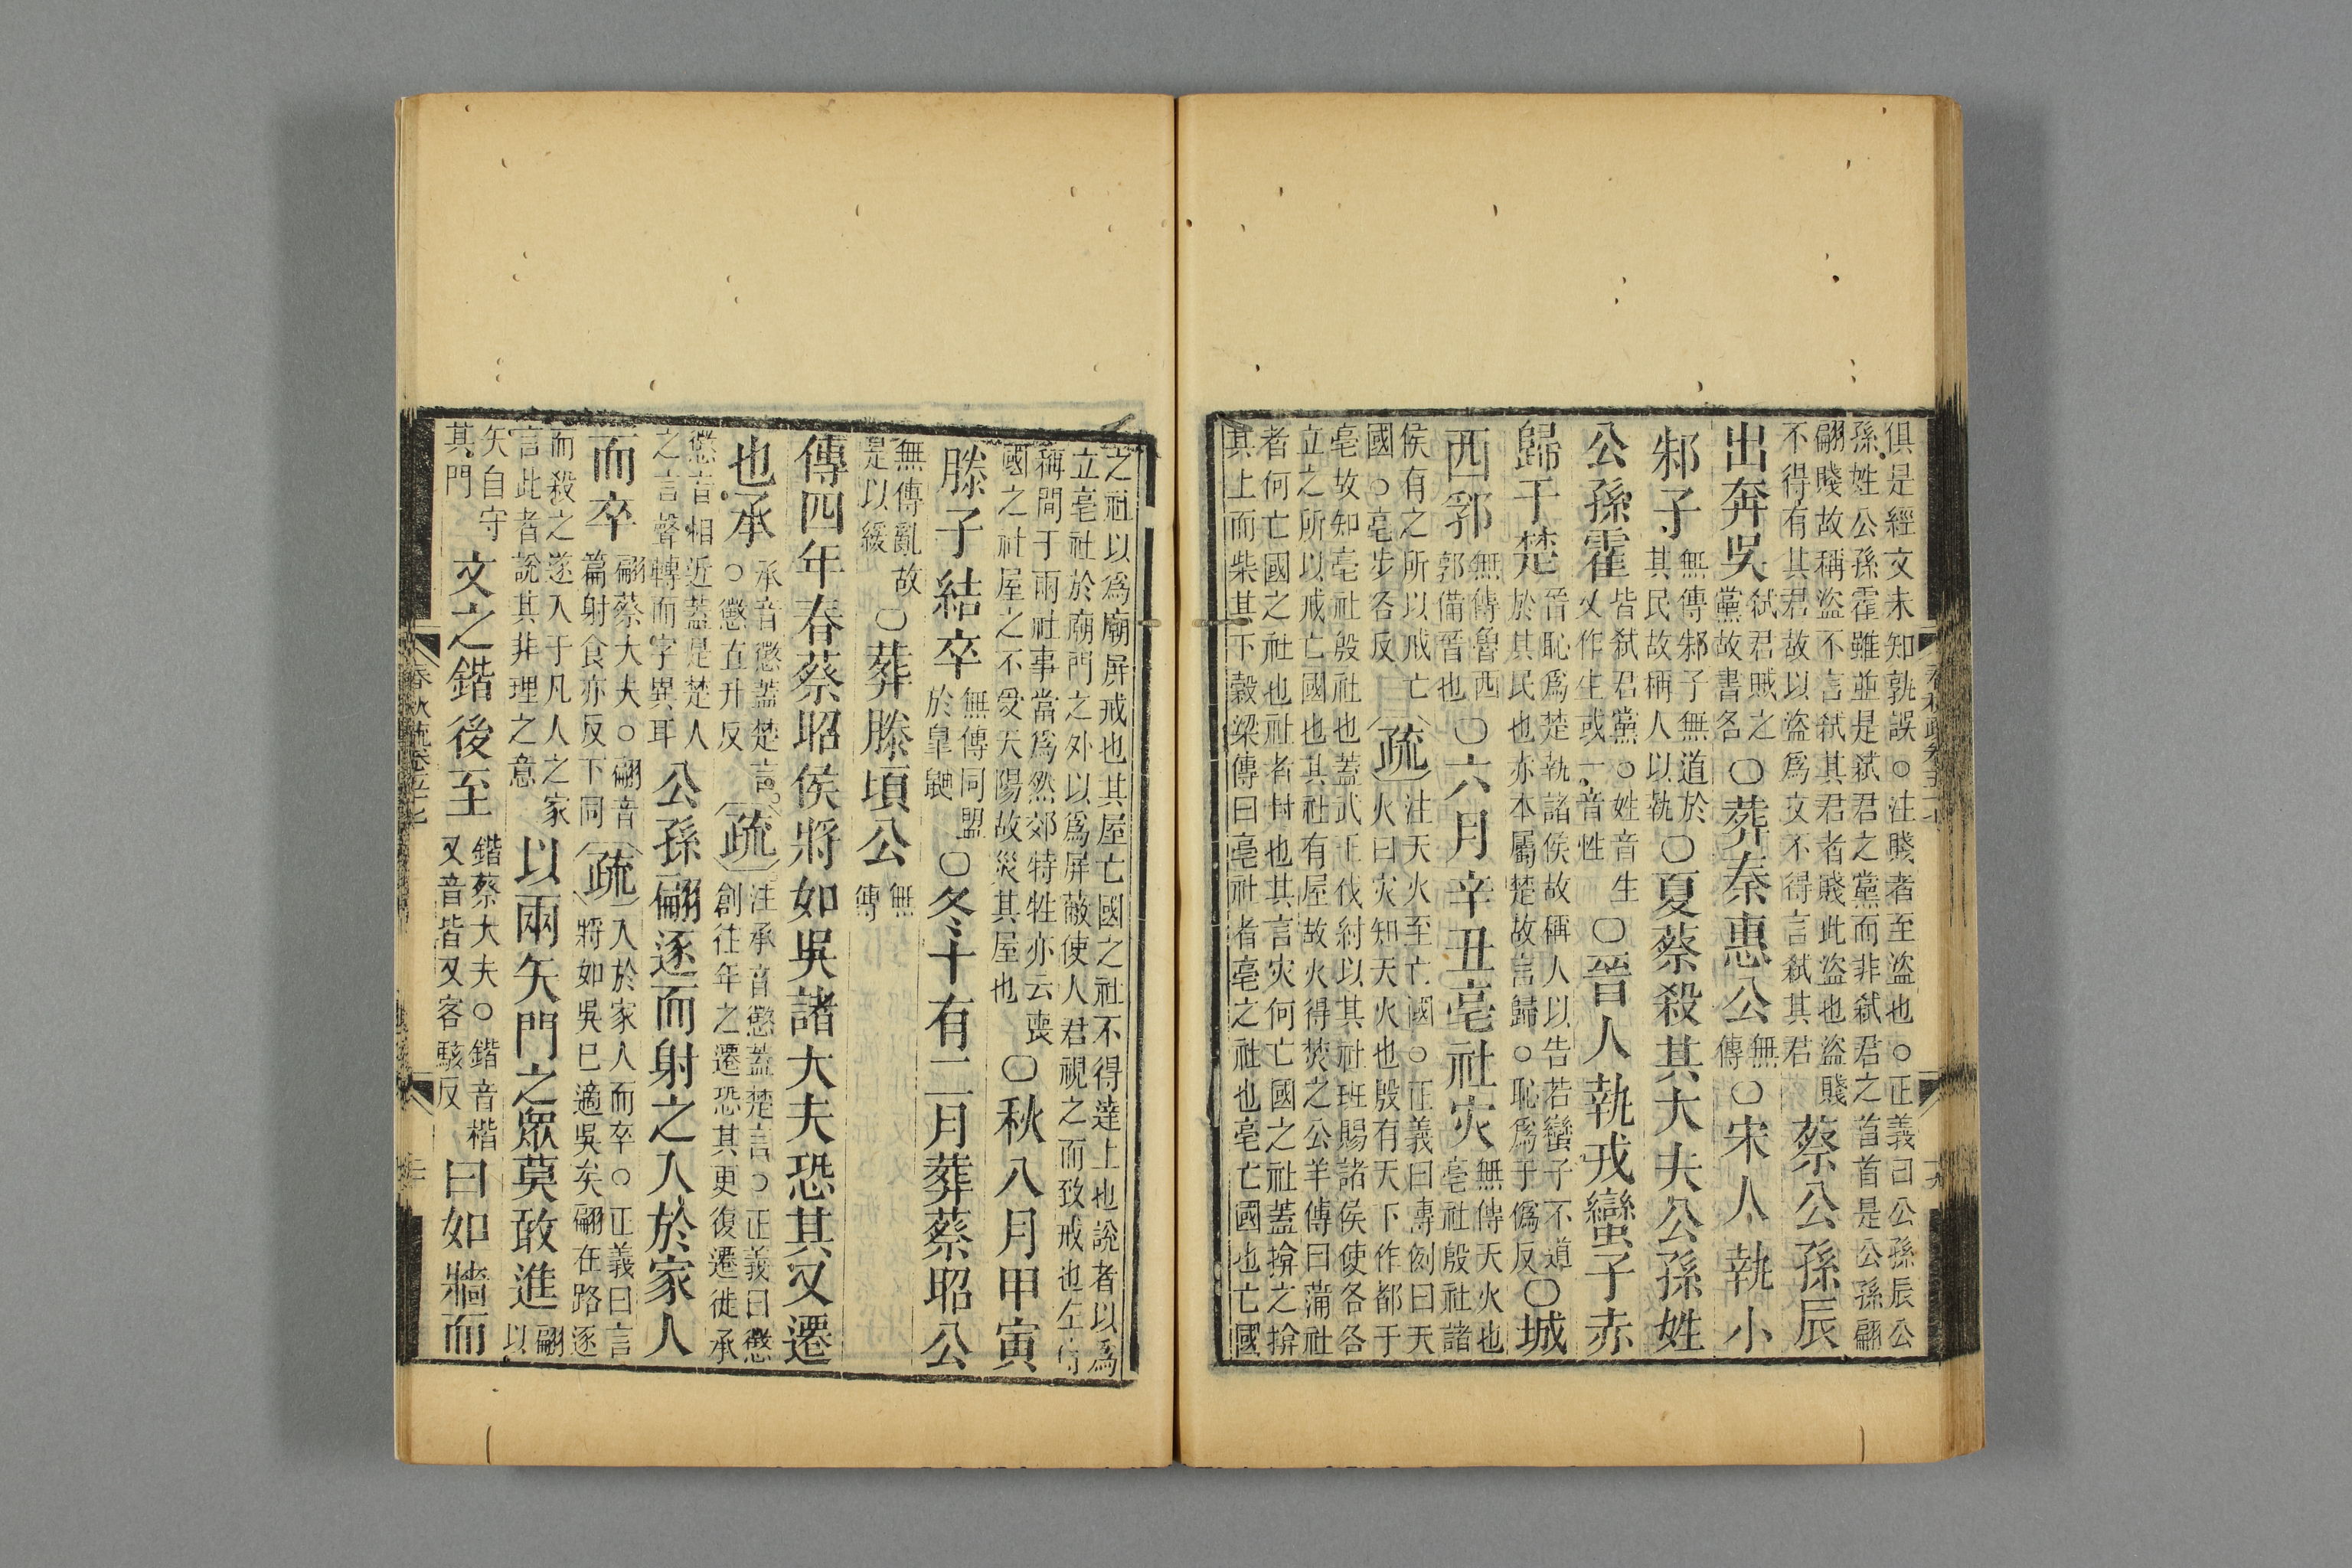 俱是經文未知孰誤○注賤者至盜也○正義曰公孫辰公
孫姓公孫霍雖並是弒君之黨而非弒君之首首是公孫翩
翩賤故稱盜不言弒其君者賤此盜也盜賤
不得有其君故以盜爲文不得言弒其君
蔡公孫辰
出奔吳
弒君賊之
黨故書名
○葬秦惠公
無
傳
○宋人執小
邾子
無傳邾子無道於
其民故稱人以執
○夏蔡殺其大夫公孫姓
公孫霍
皆弒君黨○姓音生
又作生或一音性
○晉人執戎蠻子赤
歸于楚
晉恥爲楚執諸侯故稱人以告若蠻子不道
於其民也亦本屬楚故言歸○恥爲于僞反
○城
西郛
無傳魯西
郭備晉也
○六月辛丑亳社災
無傳天火也
亳社殷社諸
侯有之所以戒亡
國○亳步各反
疏
注天火至亡國○正義曰傳例曰天
火曰災知天火也殷有天下作都于
亳故知亳社殷社也蓋武王伐紂以其社班賜諸侯使各各
立之所以戒亡國也其社有屋故火得焚之公羊傳曰蒲社
者何亡國之社也社者封也其言災何亡國之社蓋揜之揜
其上而柴其下穀梁傳曰亳社者亳之社也亳亡國也亡國
之社以爲廟屏戒也其屋亡國之社不得達上也說者以爲
立亳社於廟門之外以爲屏蔽使人君視之而致戒也左傳
稱間于兩社事當爲然郊特牲亦云喪
國之社屋之不受天陽故災其屋也
○秋八月甲寅
滕子結卒
無傳同盟
於皐鼬
○冬十有二月葬蔡昭公
無傳亂故
是以緩
○葬滕頃公
無
傳
傳四年春蔡昭侯將如吳諸大夫恐其又遷
也承
承音懲蓋楚言
○懲直升反
疏
注承音懲蓋楚言○正義曰懲
創往年之遷恐其更復遷徙承
懲音相近蓋是楚人
之言聲轉而字異耳
公孫翩逐而射之入於家人
而卒
翩蔡大夫○翩音
篇射食亦反下同
疏
入於家人而卒○正義曰言
將如吳巳適吳矣翩在路逐
而殺之遂入于凡人之家
言此者說其非理之意
以兩矢門之眾莫敢進
翩
以
矢自守
其門
文之鍇後至
鍇蔡大夫○鍇音楷
又音皆又客駭反
曰如牆而